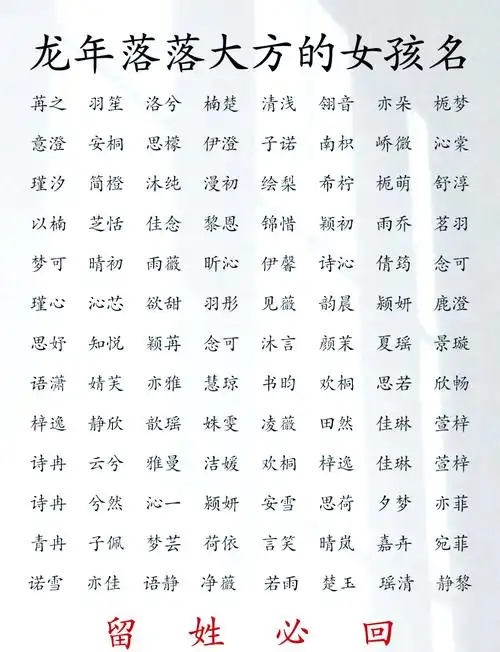 龙年落落大方的女孩名
苒之 羽笙 洛兮 楠楚 清浅 翎音 亦朵 栀梦
意澄 安桐 思檬 伊澄 子诺 南枳 峤微 沁棠
瑾汐 简橙 沐纯 漫初 绘梨 希柠 栀萌 舒淳
以楠 芝恬 佳念 黎恩 锦惜 颖初 雨乔 茗羽
梦可 晴初 雨薇 昕沁 伊馨 诗沁 倩筠 念可
瑾心 沁芯 欲甜 羽彤 见薇 韵晨 颖妍 鹿澄
思妤 知悦 颖苒 念可 沐言 颜茉 夏瑶 景璇
语潇 婧芙 亦雅 慧琼 书昀 欢桐 思若 欣畅
梓逸 静欣 歆瑶 姝雯 凌薇 田然 佳琳 萱梓
诗冉 云兮 雅曼 洁媛 欢桐 梓逸 佳琳 萱梓
诗冉 兮然 沁一 颍妍 安雪 思荷 夕梦 亦菲
青冉 子佩 梦芸 荷依 言笑 晴岚 嘉卉 宛菲
诺雪 亦佳 语静 净薇 若雨 楚玉 瑶清 静黎
留姓必回